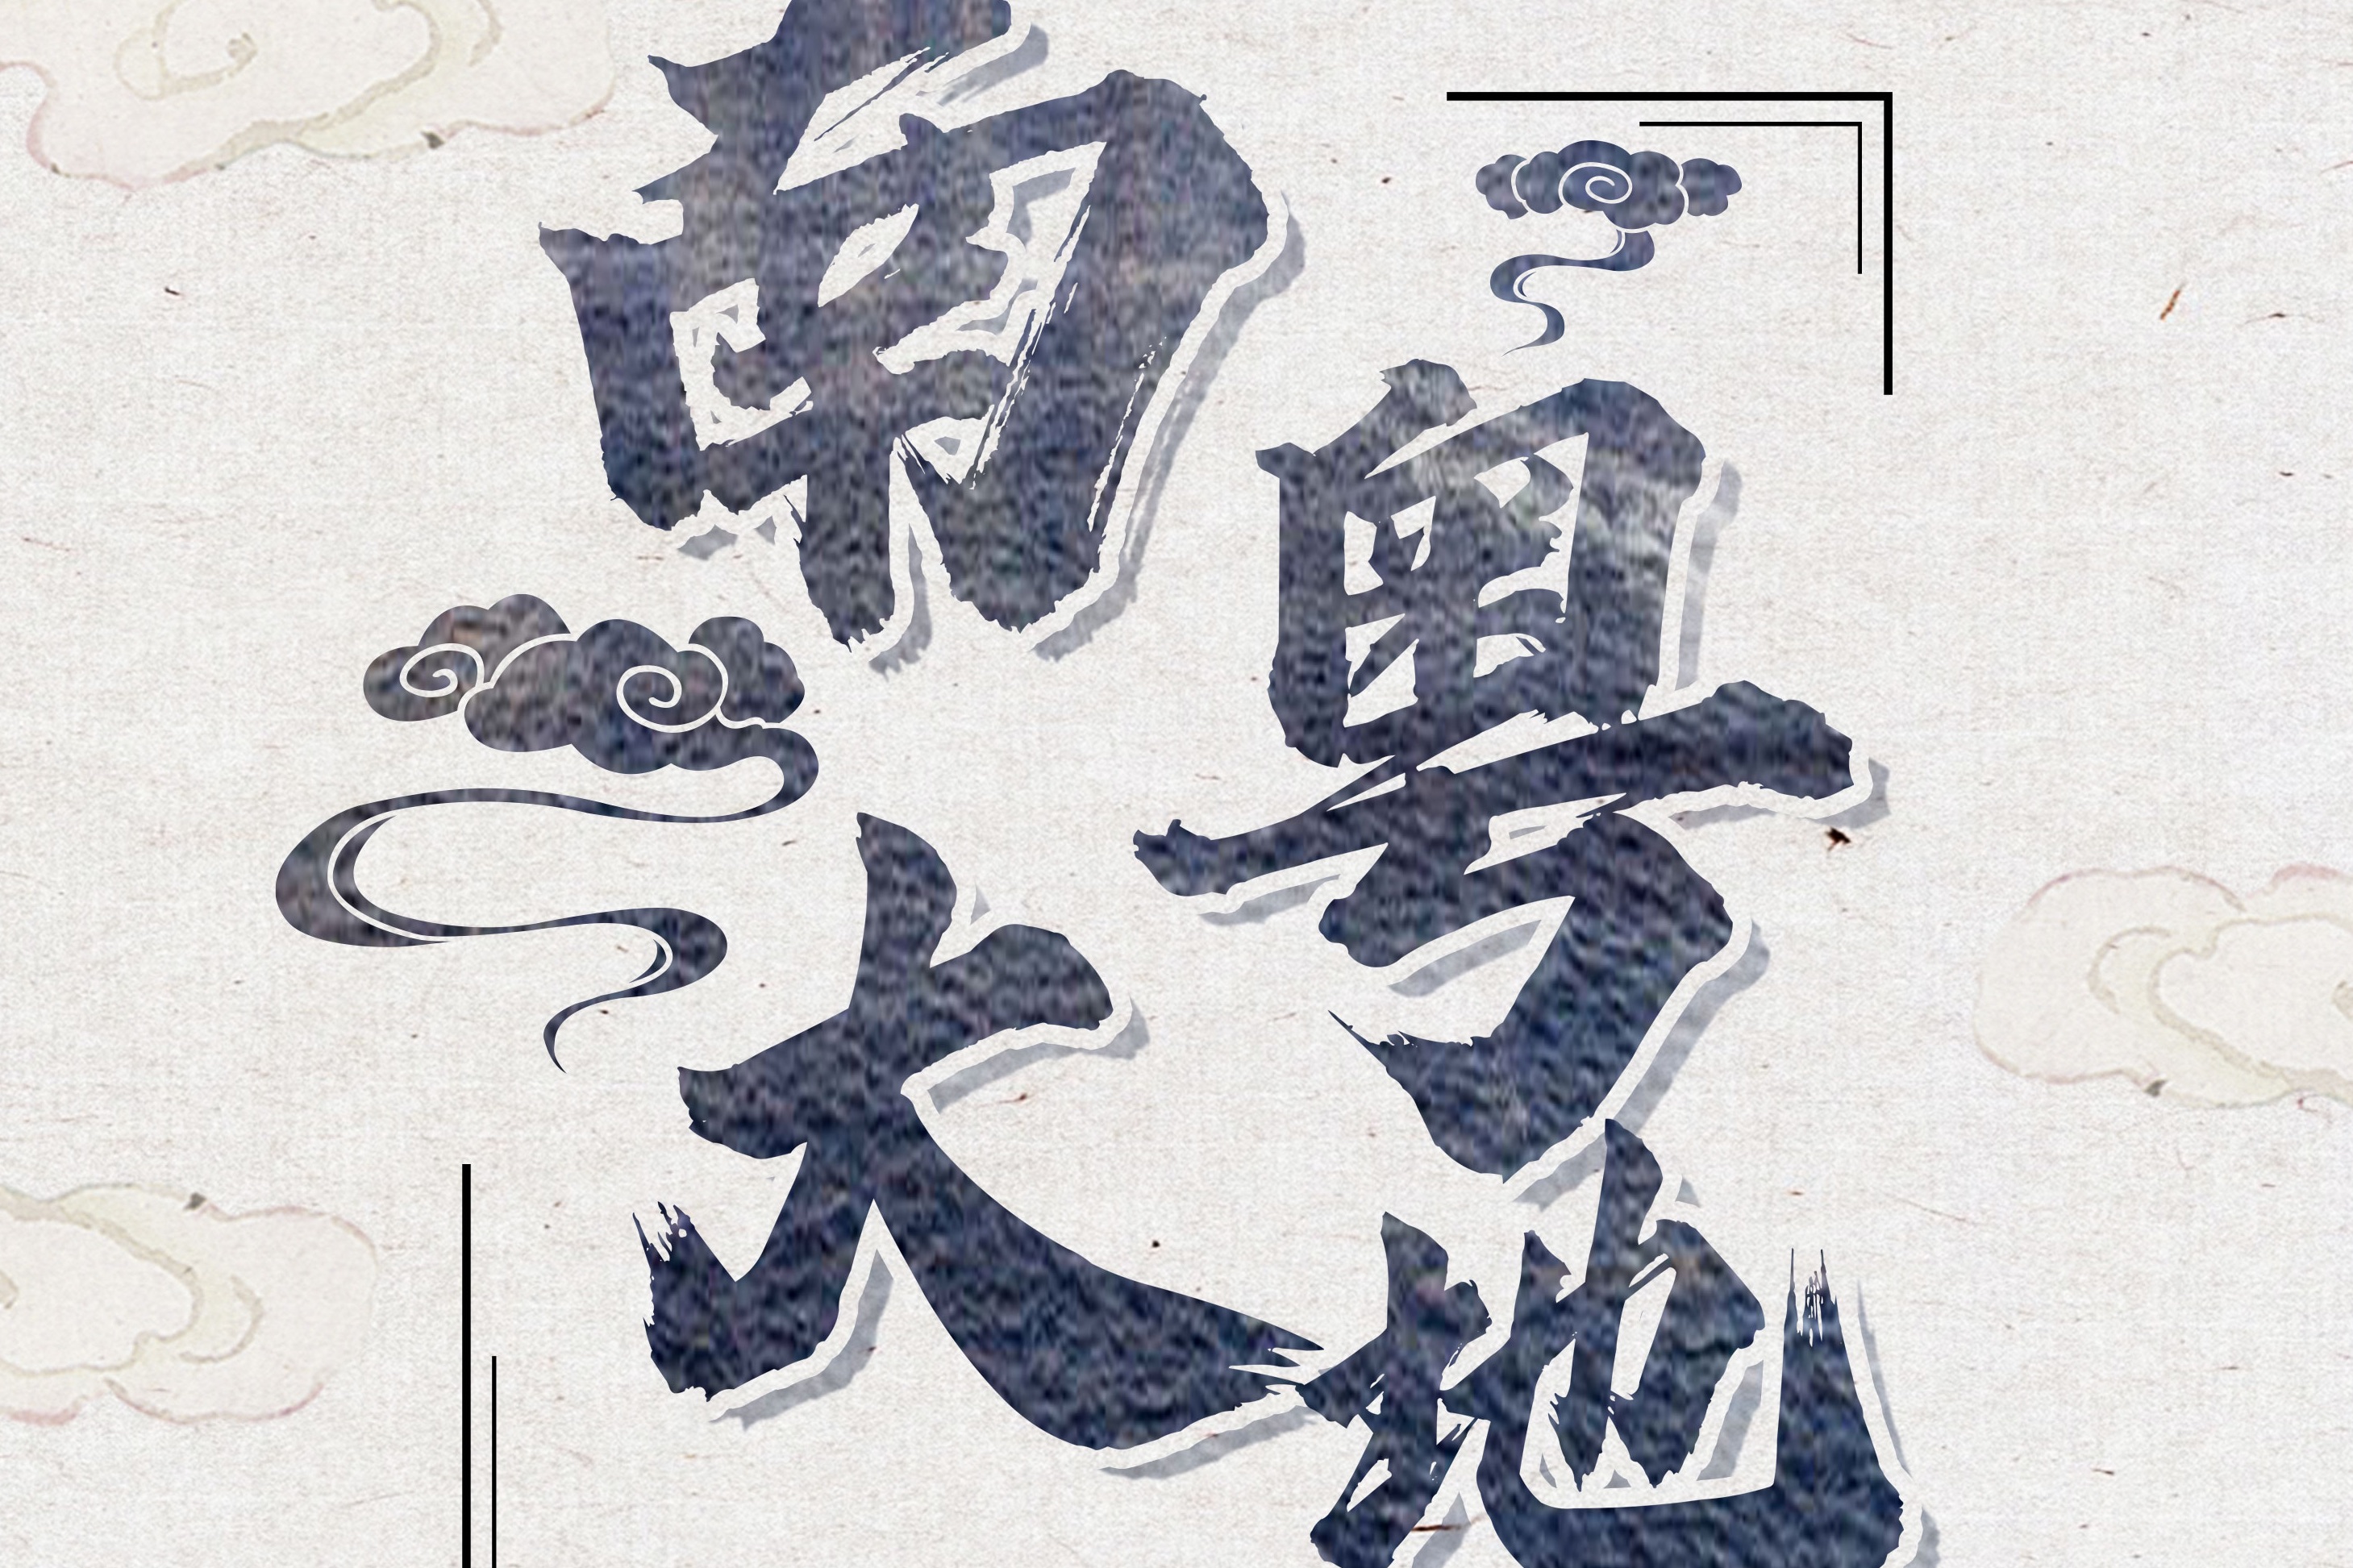 南粤
大地